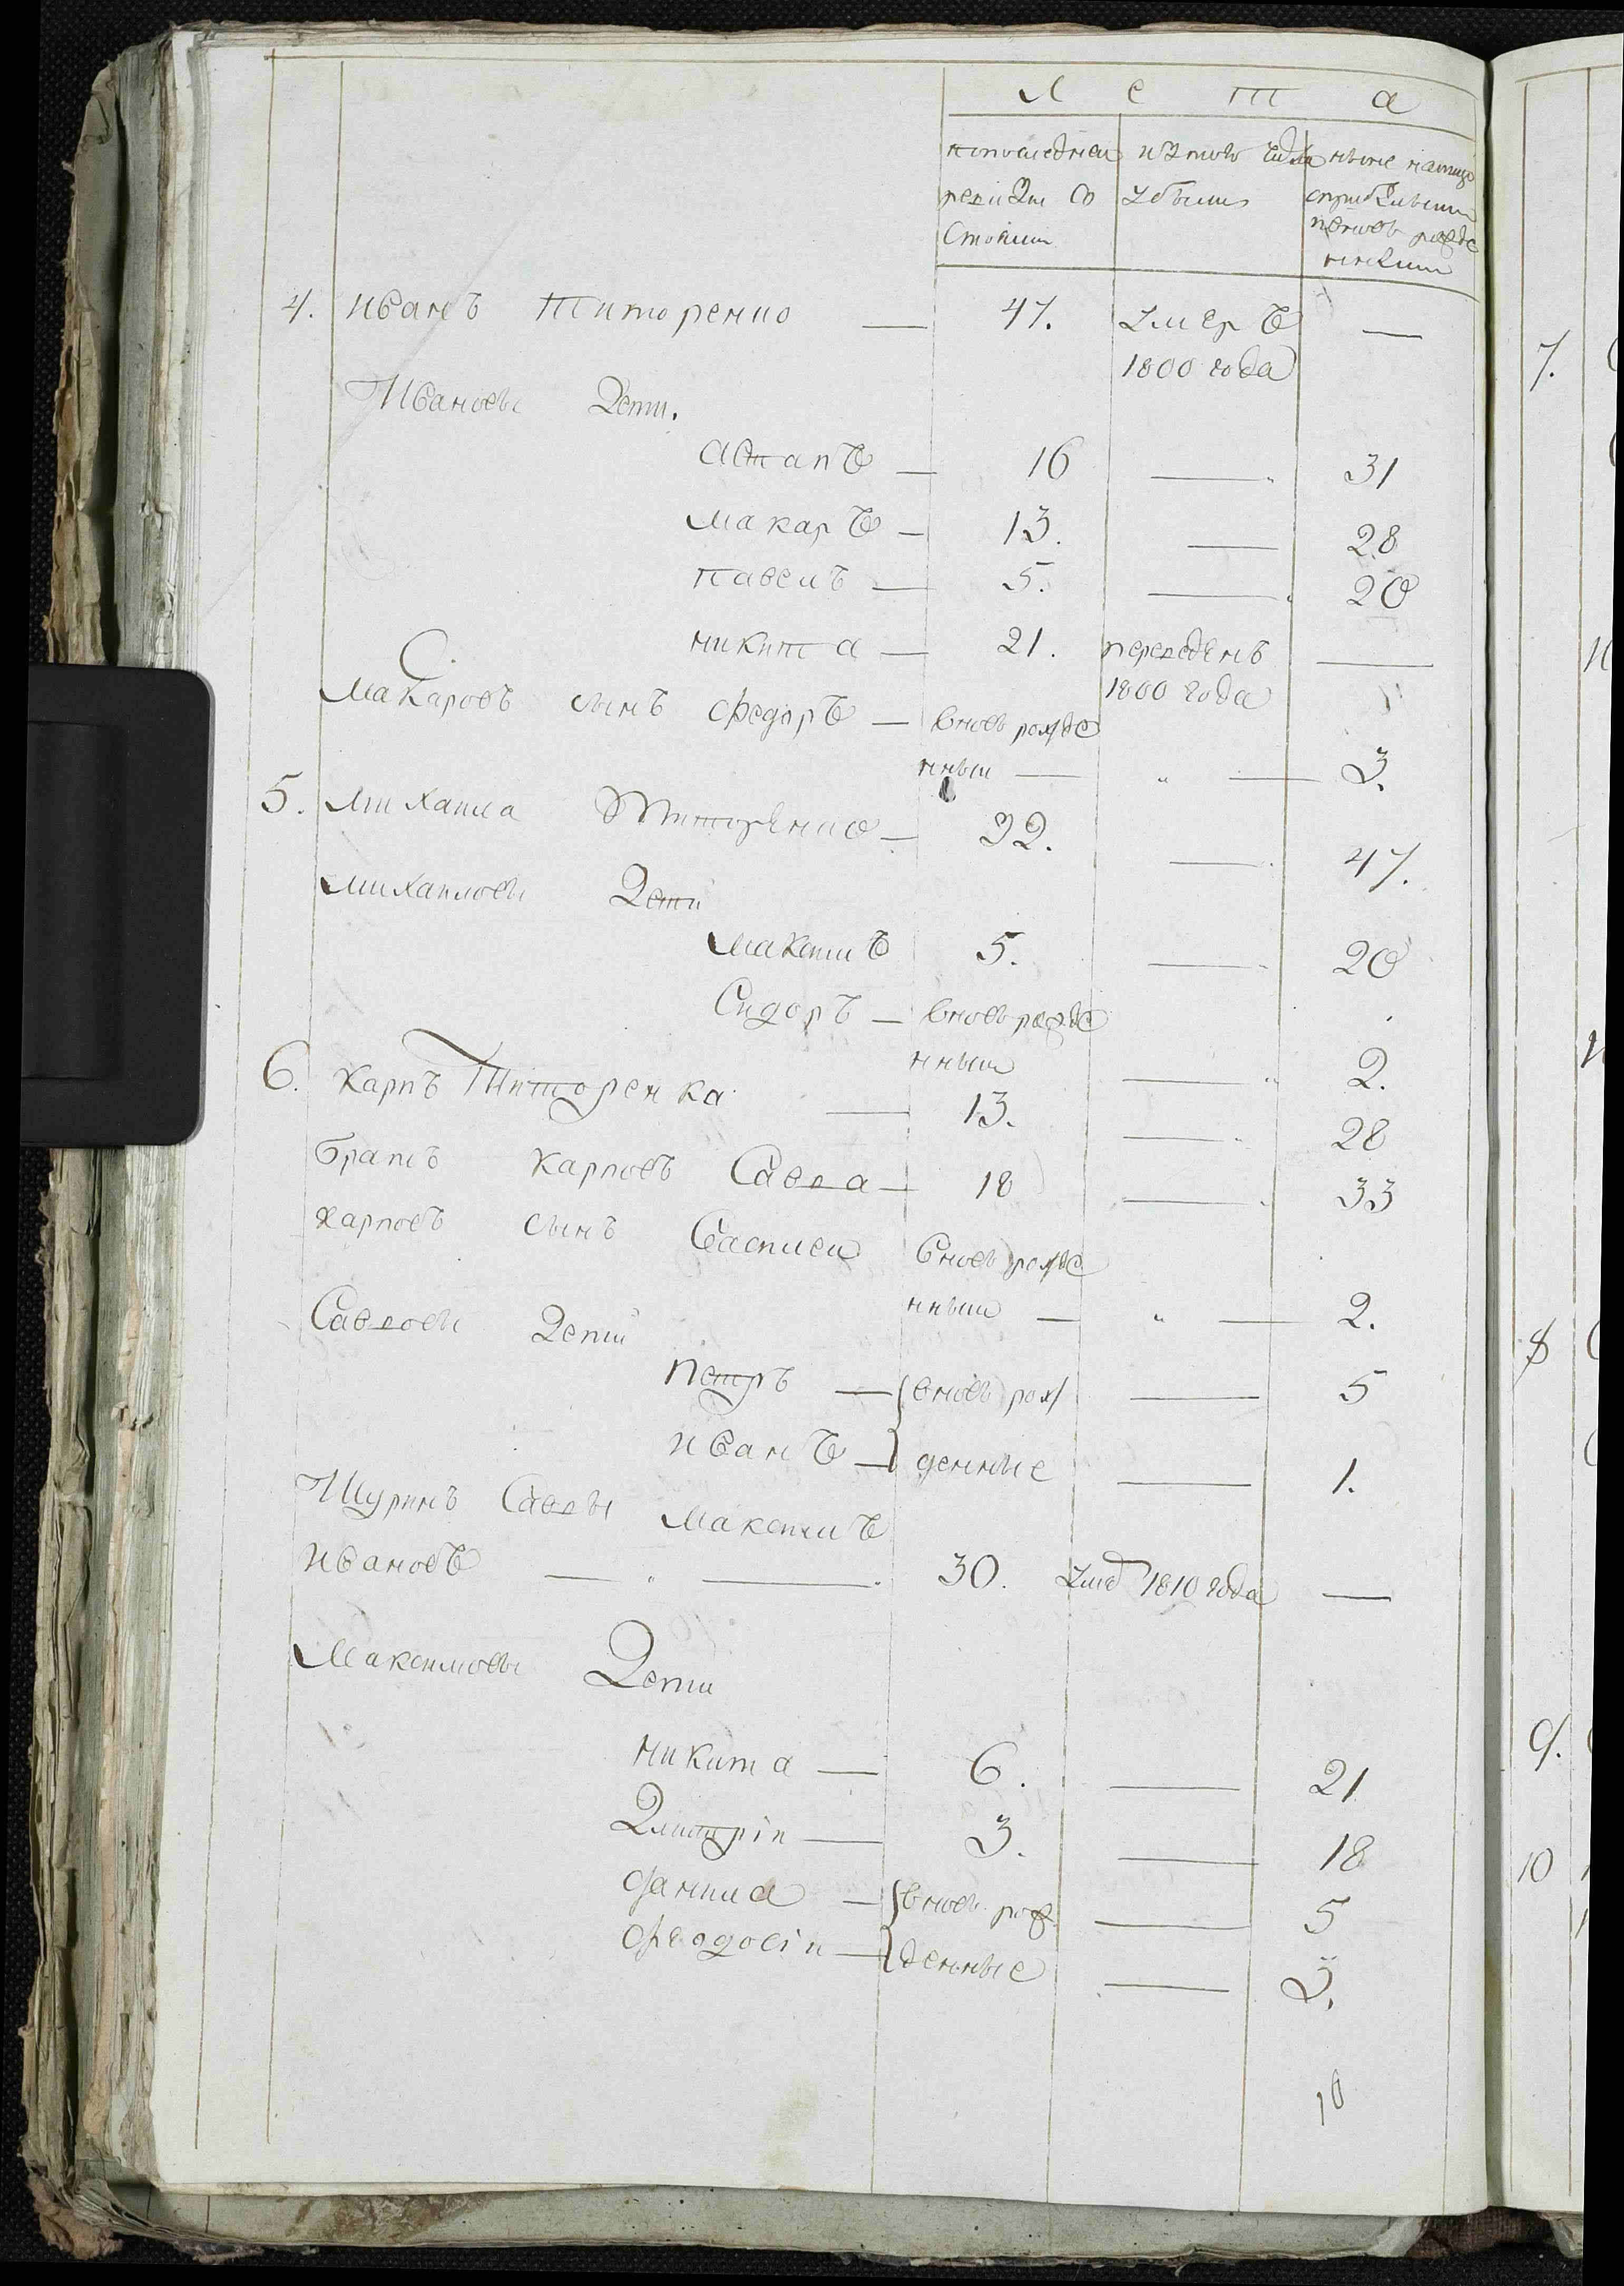 Лета
попоследнеи ревизiи состояли
изтого числа убыли
ныне налицо
4. иванъ титоренко — 47. умеръ 1800 года —
Ивановы Дети.
астапъ — 16 — 31
макаръ — 13. — 28
павелъ — 5. — 20
никита — 21. переведенъ 1800 года —
макаровъ сынъ федоръ — вновь рожде
нныи — " — 3.
5. михаила Титоренко — 32. — 47.
михаиловы Дети
максимъ 5. — 20
Сидоръ — вновь рожде
нныи — 2.
6. карпъ Титоренка — 13. — 28
братъ карповъ Савва — 18 — 33
карповъ сынъ Василеи вновь рожде
нныи — " — 2.
Саввовы Дети
петръ — вновь рож — 5
иванъ — денные — 1.
Шуринъ Саввы максимъ
ивановъ — 30. умре 1810 года —
Максимовы Дети
никита — 6. — 21
Дмитрiи — 3. — 18
данила — вновь рож — 5
феодосiи — денные — 3.
10
7.
8
9.
10